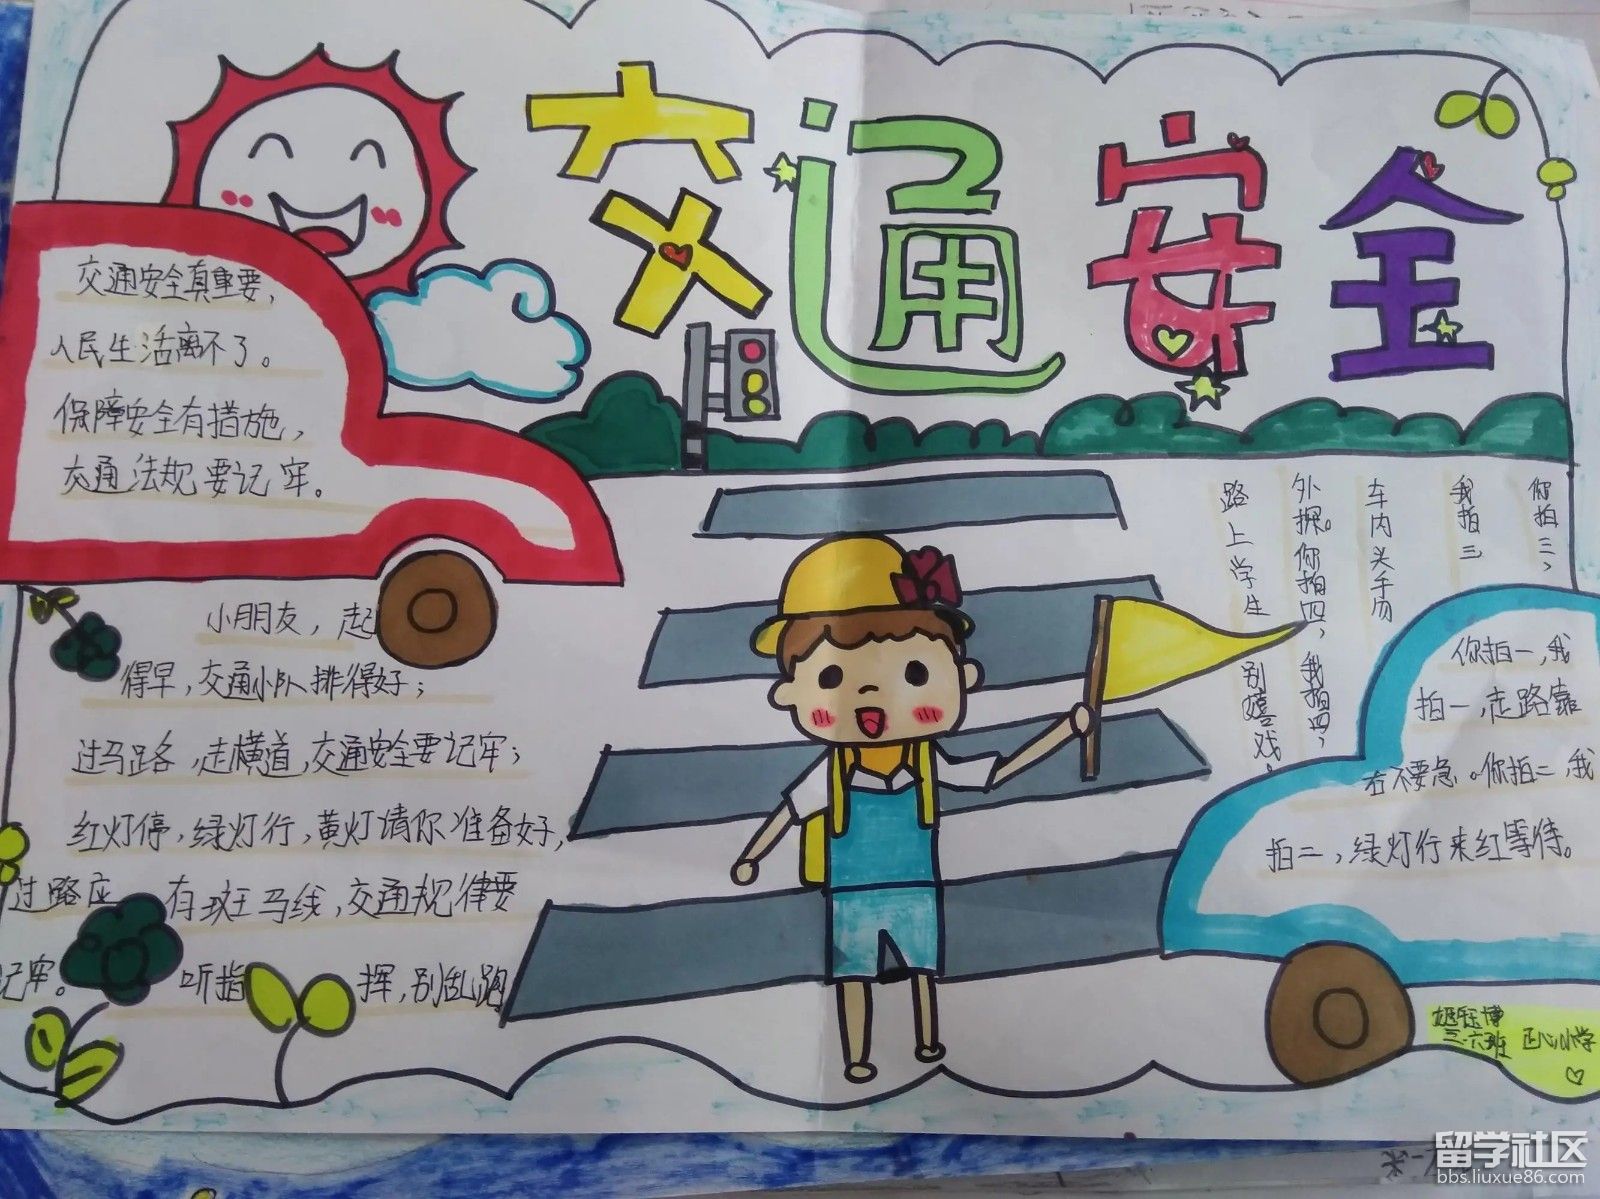 交通安全
交通安全真重要，
人民生活离不了。
保障安全有措施，
交通法规要记牢。
小朋友，起
得早，交通小队排得好；
过马路，走横道，交通安全要记牢；
红灯停，绿灯行，黄灯请你准备好，
过路座 有斑马线，交通规律要
记牢。 听指 挥，别乱跑
你拍一，我
拍一，走路靠
右不要急。你拍二，我
拍二，绿灯行来红等待。
你拍三，
我拍三
车内头手勿
外探。你拍四，我拍四，
路上学生 别嬉戏。
三·六班 正心小学
留学社区
bbs.liuxue86.com